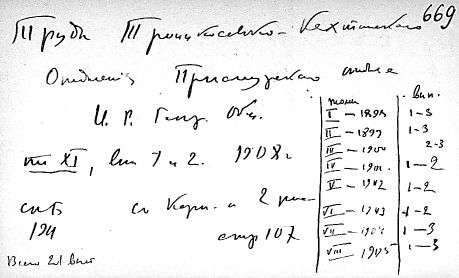 669
Труды Троицкосавско-Кяхтинского
Отделения Приамурского отдела
И. Р. Геогр. Общ.
т XI, вып 1 и 2. 1908 г
СПБ с карт. и 2 рис
194 стр 107
Всего 21 вып
томы вып.
I – 1898 1–3
II – 1899 1–3
III – 1900 2–3
IV – 1901 1–2
V – 1902 1–2
VI – 1903 1–2
VII – 1904 1–3
VIII – 1905 1–3